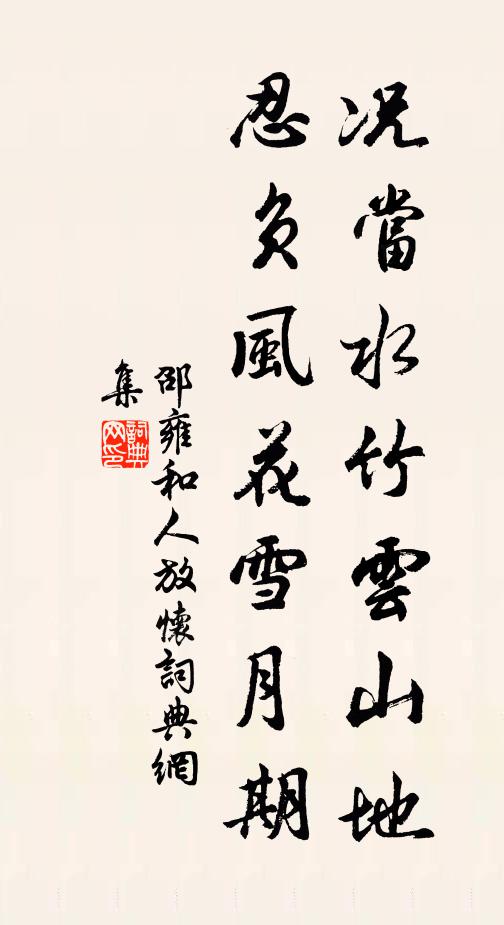 况當水竹雲山地
忍負風花雪月期
邵雍和人放懷詞典網
集
詞典
网印